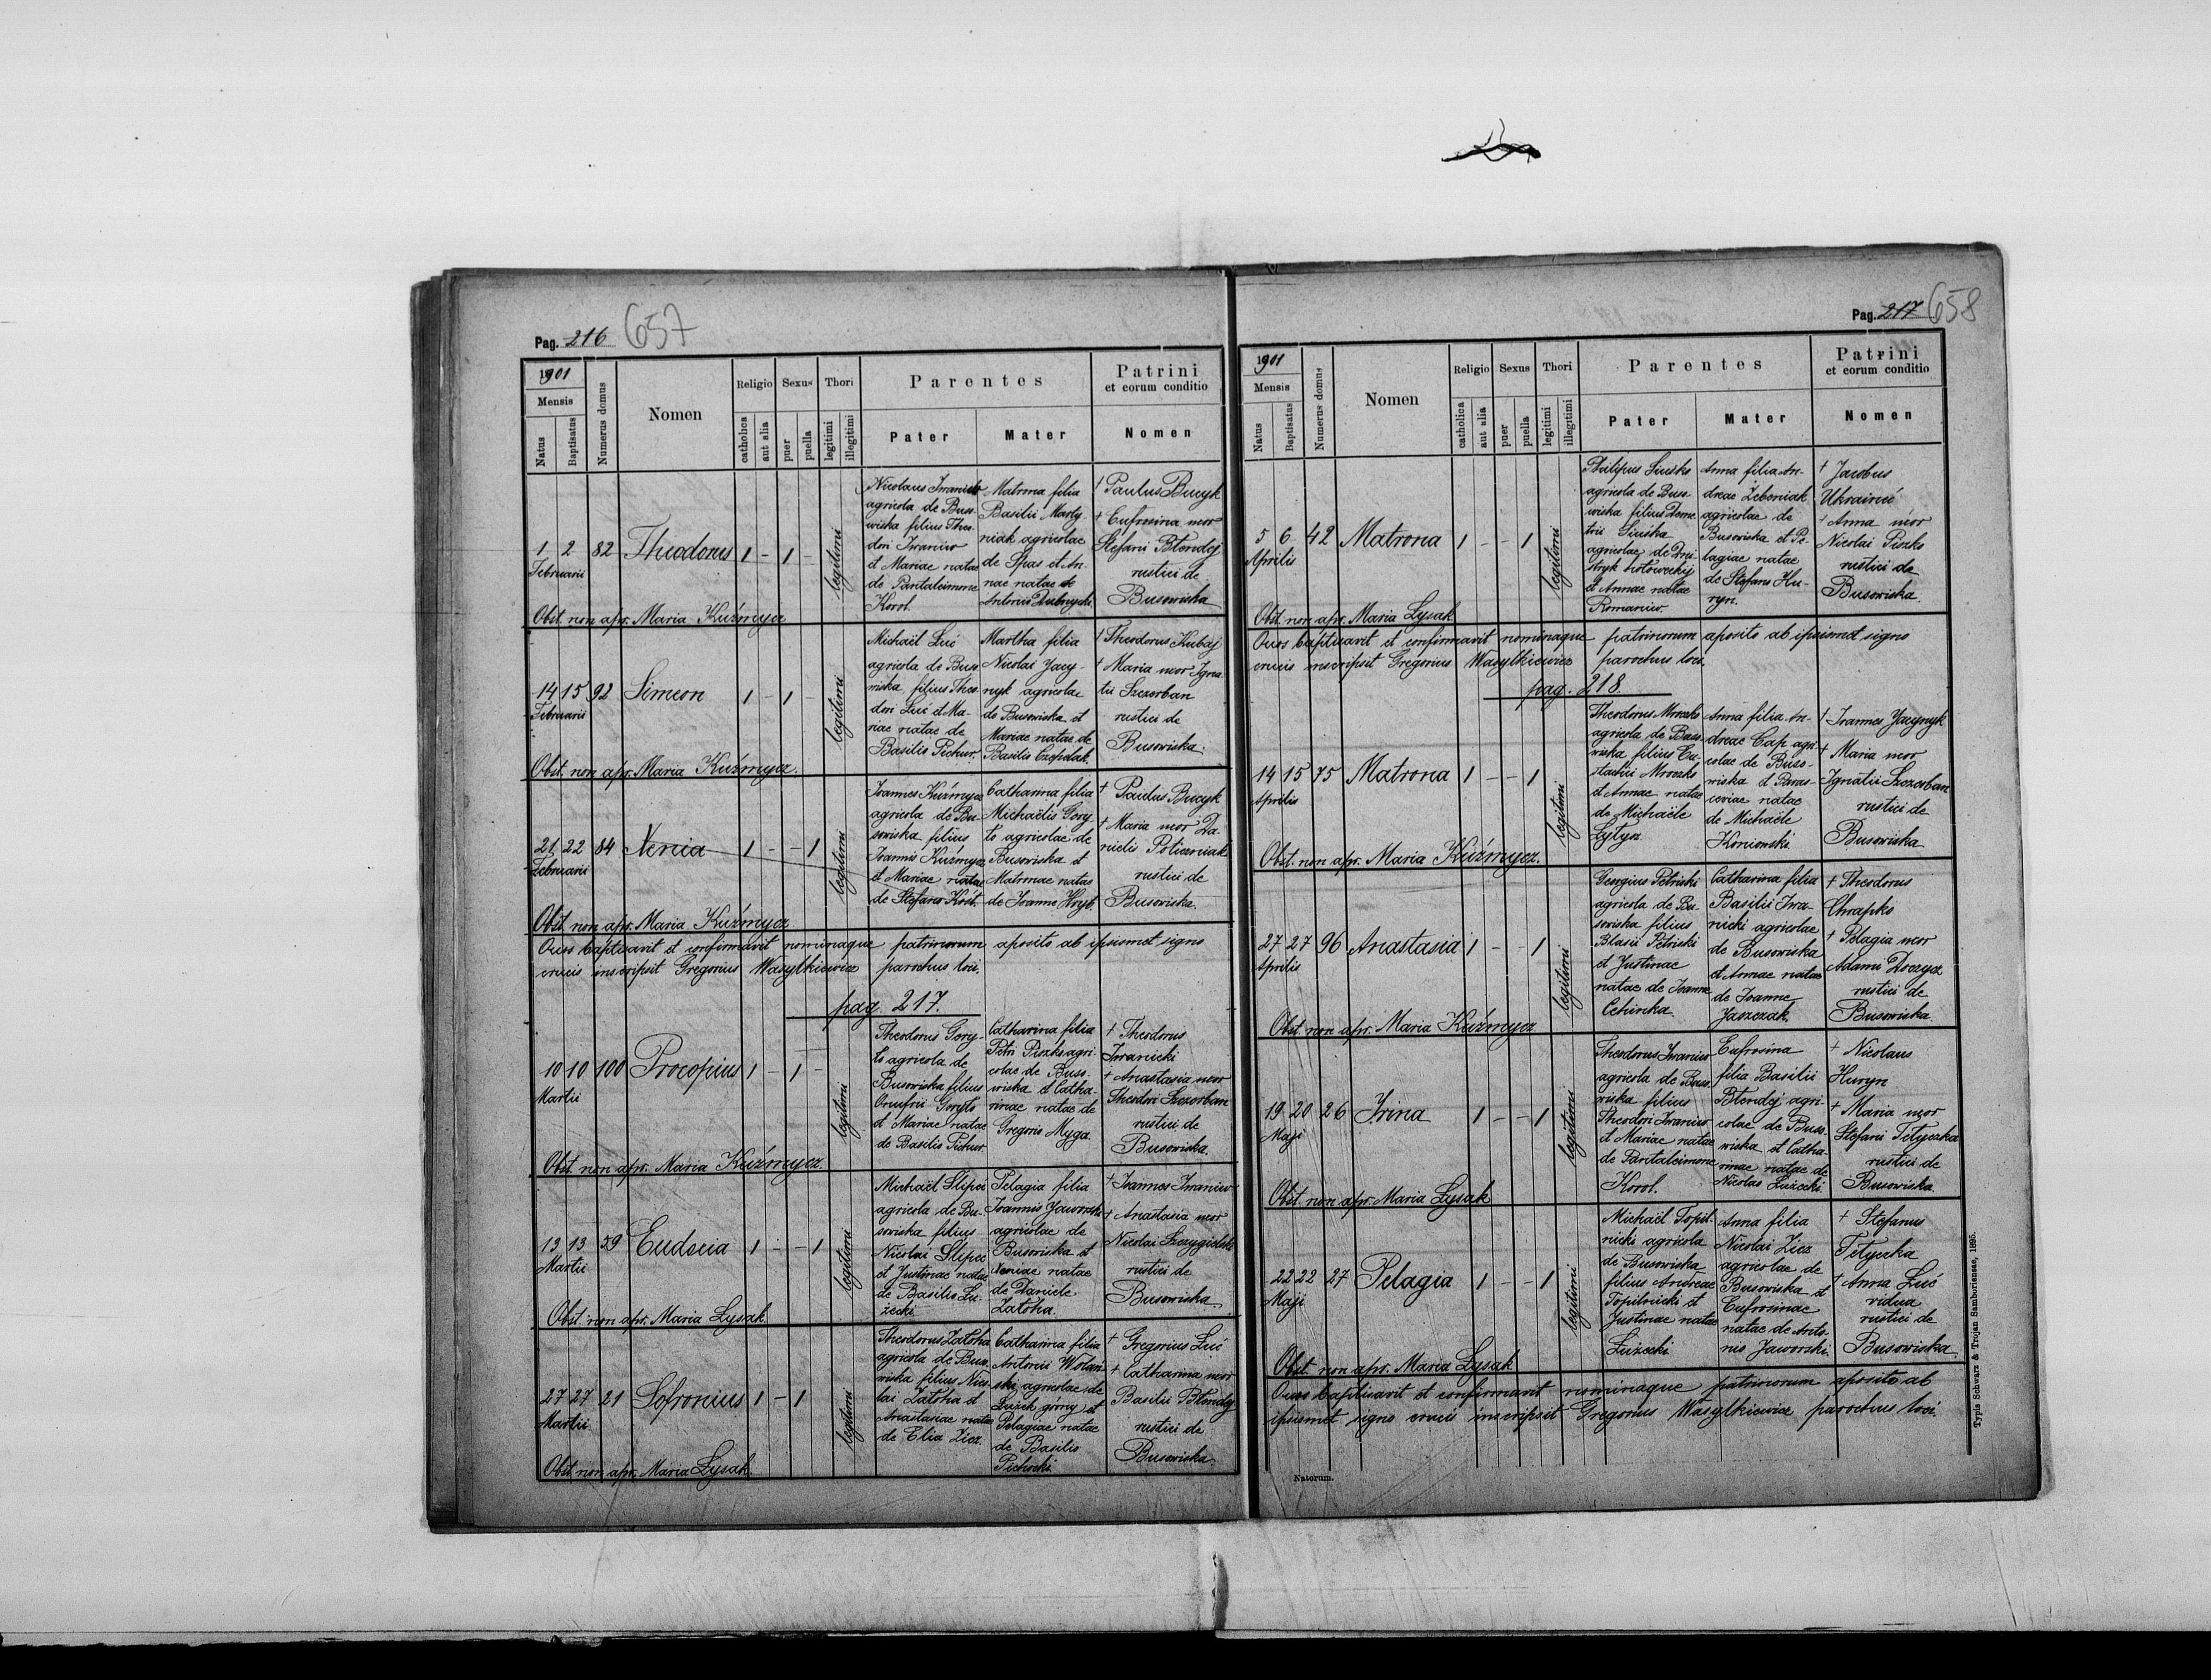 Pag. 216 657
1901
Mensis
Natus
Baptisatus
Numerus domus
Nomen
Religio
catholica
aut alia
Sexus
puer
puella
Thori
legitimi
illegitimi
Parentes
Pater
Mater
Patrini
et eorum conditio
Nomen
1 2 82 Theodorus 1 - 1 - legitimi
Februarii
Nicolaus Iwaniw
agricola de Buso-
wiska filius Theo-
dori Iwaniw
et Mariae natae
de Pantaleimone
Korol.
Matrona filia
Basilii Marty-
niak agricolae
de Spas et An-
nae natae de
Antonio Dubnycki
† Paulus Bucyk
† Eufrosina uxor
Stefani Błondej
rustici de
Busowiska
Obst. non apr. Maria Kuźmycz
14 15 92 Simeon 1 - 1 - legitimi
Februarii
Michaël Łuć
agricola de Buso-
wiska filius Theo-
dori Łuć et Ma-
riae natae de
Basilio Pichur.
Martha filia
Nicolai Jacy-
nyk agricolae
de Busowiska et
Mariae natae de
Basilio Czopolak.
† Theodorus Kubaj
† Maria uxor Igna-
tii Szczerban
rustici de
Busowiska.
Obst. non apr. Maria Kuźmycz.
21 22 84 Xenia 1 - - 1 legitimi
Februarii
Joannes Kuźmycz
agricola de Bu-
sowiska filius
Joannis Kuźmycz
et Mariae natae
de Stefano Kość.
Catharina filia
Michaëlis Gory-
to agricolae de
Busowiska et
Matronae natae
de Joanne Hryb.
† Paulus Bucyk
† Maria uxor Da-
nielis Policzniak
rustici de
Busowiska.
Obst. non apr. Maria Kuźmycz
Quos baptisavit et confirmavit nominaque patrinorum aposito ab ipsismet signo
crucis inscripsit Gregorius Wasylkiewicz parochus loci.
pag. 217.
10 10 100 Procopius 1 - 1 - legitimi
Martii
Theodorus Gory-
to agricola de
Busowiska filius
Onufrii Goryto
et Mariae natae
de Basilio Pichur.
Catharina filia
Petri Piszko agri-
colae de Buso-
wiska et Catha-
rinae natae de
Gregorio Myga.
† Theodorus
Iwanicki
† Anastasia uxor
Theodori Szczerban
rustici de
Busowiska.
Obst. non apr. Maria Kuźmycz.
13 13 59 Eudocia 1 - - 1 legitimi
Martii
Michaël Slipec
agricola de Bu-
sowiska filius
Nicolai Slipec
et Justinae natae
de Basilio Łu-
żecki.
Pelagia filia
Joannis Jaworski
agricolae de
Busowiska et
Xeniae natae
de Daniele
Zatoha.
† Joannes Iwaniw
† Anastasia uxor
Nicolai Szczygielski
rustici de
Busowiska.
Obst. non apr. Maria Łysak.
27 27 21 Sofronius 1 - 1 legitimi
Martii
Theodorus Zatoha
agricola de Buso-
wiska filius Nico-
lai Zatoha et
Anastasiae natae
de Elia Zicz.
Catharina filia
Antonii Wolan-
ski agricolae de
Łużek górny et
Pelagiae natae
de Basilio
Pichocki.
† Gregorius Łuć
† Catharina uxor
Basilii Błondej
rustici de
Busowiska.
Obst. non apr. Maria Łysak.
Pag. 217 658
1901
Mensis
Natus
Baptisatus
Numerus domus
Nomen
Religio
catholica
aut alia
Sexus
puer
puella
Thori
legitimi
illegitimi
Parentes
Pater
Mater
Patrini
et eorum conditio
Nomen
5 6 42 Matrona 1 - - 1 legitimi
Aprilis
Philipus
agricola de Buso-
wiska filius Deme-
trii
agricolae de
et Annae natae
Romaniw.
Anna filia An-
dreae Żeboniak
agricolae de
Busowiska et Pe-
lagiae natae
de Stefano Hu-
ryn.
† Jacobus
Ukraineć
† Anna uxor
Nicolai Piszko
rustici de
Busowiska.
Obst. non apr. Maria Łysak
Quos baptisavit et confirmavit nominaque patrinorum aposito ab ipsismet signo
crucis inscripsit Gregorius Wasylkiewicz parochus loci.
pag. 218.
14 15 75 Matrona 1 - - 1 legitimi
Aprilis
Theodorus Mroczko
agricola de Buso-
wiska filius Eu-
stachii Mroczko
et Annae natae
de Michaële
Łytycz.
Anna filia An-
dreae Cap agri-
colae de Buso-
wiska et Paras-
ceviae natae
de Michaële
Koniowski
† Joannes Jacynyk
† Maria uxor
Ignatii Szczerban
rustici de
Busowiska
Obst. non apr. Maria Kuźmycz.
27 27 96 Anastasia 1 - - 1 legitimi
Aprilis
Georgius Petriski
agricola de Bu-
sowiska filius
Blasii Petriski
et Justinae
natae de Joanne
Cehinka.
Catharina filia
Basilii Iwa-
nicki agricolae
de Busowiska
et Annae natae
de Joanne
Jaszczak.
† Theodorus
Chrapko
† Pelagia uxor
Adami
rustici de
Busowiska.
Obst. non apr. Maria Kuźmycz
19 20 26 Irina 1 - - 1 legitimi
Maji
Theodorus Iwaniw
agricola de Buso-
wiska filius
Theodori Iwaniw
et Mariae natae
de Pantaleimone
Korol.
Eufrosina
filia Basilii
Błondej agri-
colae de Buso-
wiska et Catha-
rinae natae de
Nicolao Łużecki.
† Nicolaus
Huryn
† Maria uxor
Stefani Tetyczka
rustici de
Busowiska.
Obst. non apr. Maria Łysak
22 22 27 Pelagia 1 - - 1 legitimi
Maji
Michaël Topil-
nicki agricola
de Busowiska
filius Andreae
Topilnicki et
Justinae natae
Łużecki
Anna filia
Nicolai Zicz
agricolae de
Busowiska et
Eufrosinae
natae de Anto-
nio Jaworski.
† Stefanus
Tetyczka
† Anna Łuć
vidua
rustici de
Busowiska.
Obst. non apr. Maria Łysak
Quos baptisavit et confirmavit nominaque patrinorum aposito ab
ipsismet signo crucis inscripsit Gregorius Wasylkiewicz parochus loci.
Natorum.
Typis Schwarz & Trojan Samboriensae, 1895.